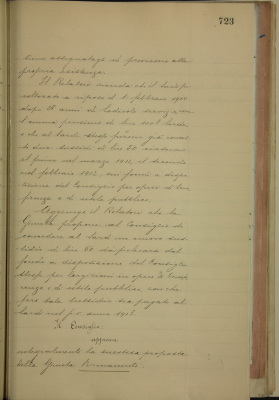 723
bene assegnatagli di provvisione alla
propria esistenza.
Il Relatore ricorda che il Sardi fu
collocato a riposo il 1° febbraio 19
dopo anni di lodevole servizio con
l'annua pensione di lire
e che al Sardi stesso furono già accor-
date due sussidi di lire 50 ciascuno
il primo nel marzo 1912, il secondo
nel febbraio 1913, sui fondi a dispo-
sizione del Consiglio per opere di bene-
ficenza e di utilità pubblica.
Aggiunge il Relatore che la
Giunta propone al Consiglio di
concedere al Sardi un nuovo sus-
sidio di lire 50 da prelevarsi dal
fondo a disposizione del Consiglio
stesso per largizioni in opere di benefi-
cenza e di utilità pubblica, con che
però tale sussidio sia pagato al
Sardi nel p. v. anno
Il Consiglio
approva
integralmente la suestesa proposta
della Giunta Permanente